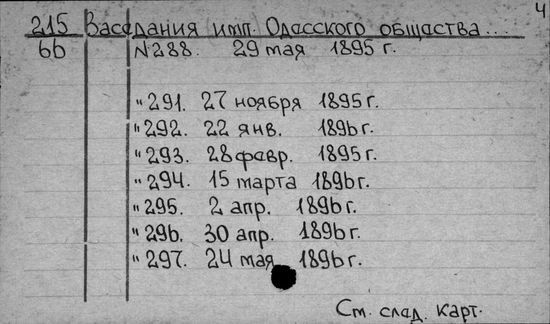 4
215 Заседания имп. Одесского общества...
66 N288. 29 мая 1895 г.
"291. 27 ноября 1895 г.
"292. 22 янв. 1896 г.
"293. 28 февр. 1895 г.
"294. 15 марта 1896 г.
"295. 2 апр. 1896 г.
"296. 30 апр. 1896 г.
"297. 24 мая 1896 г.
См. след. карт.